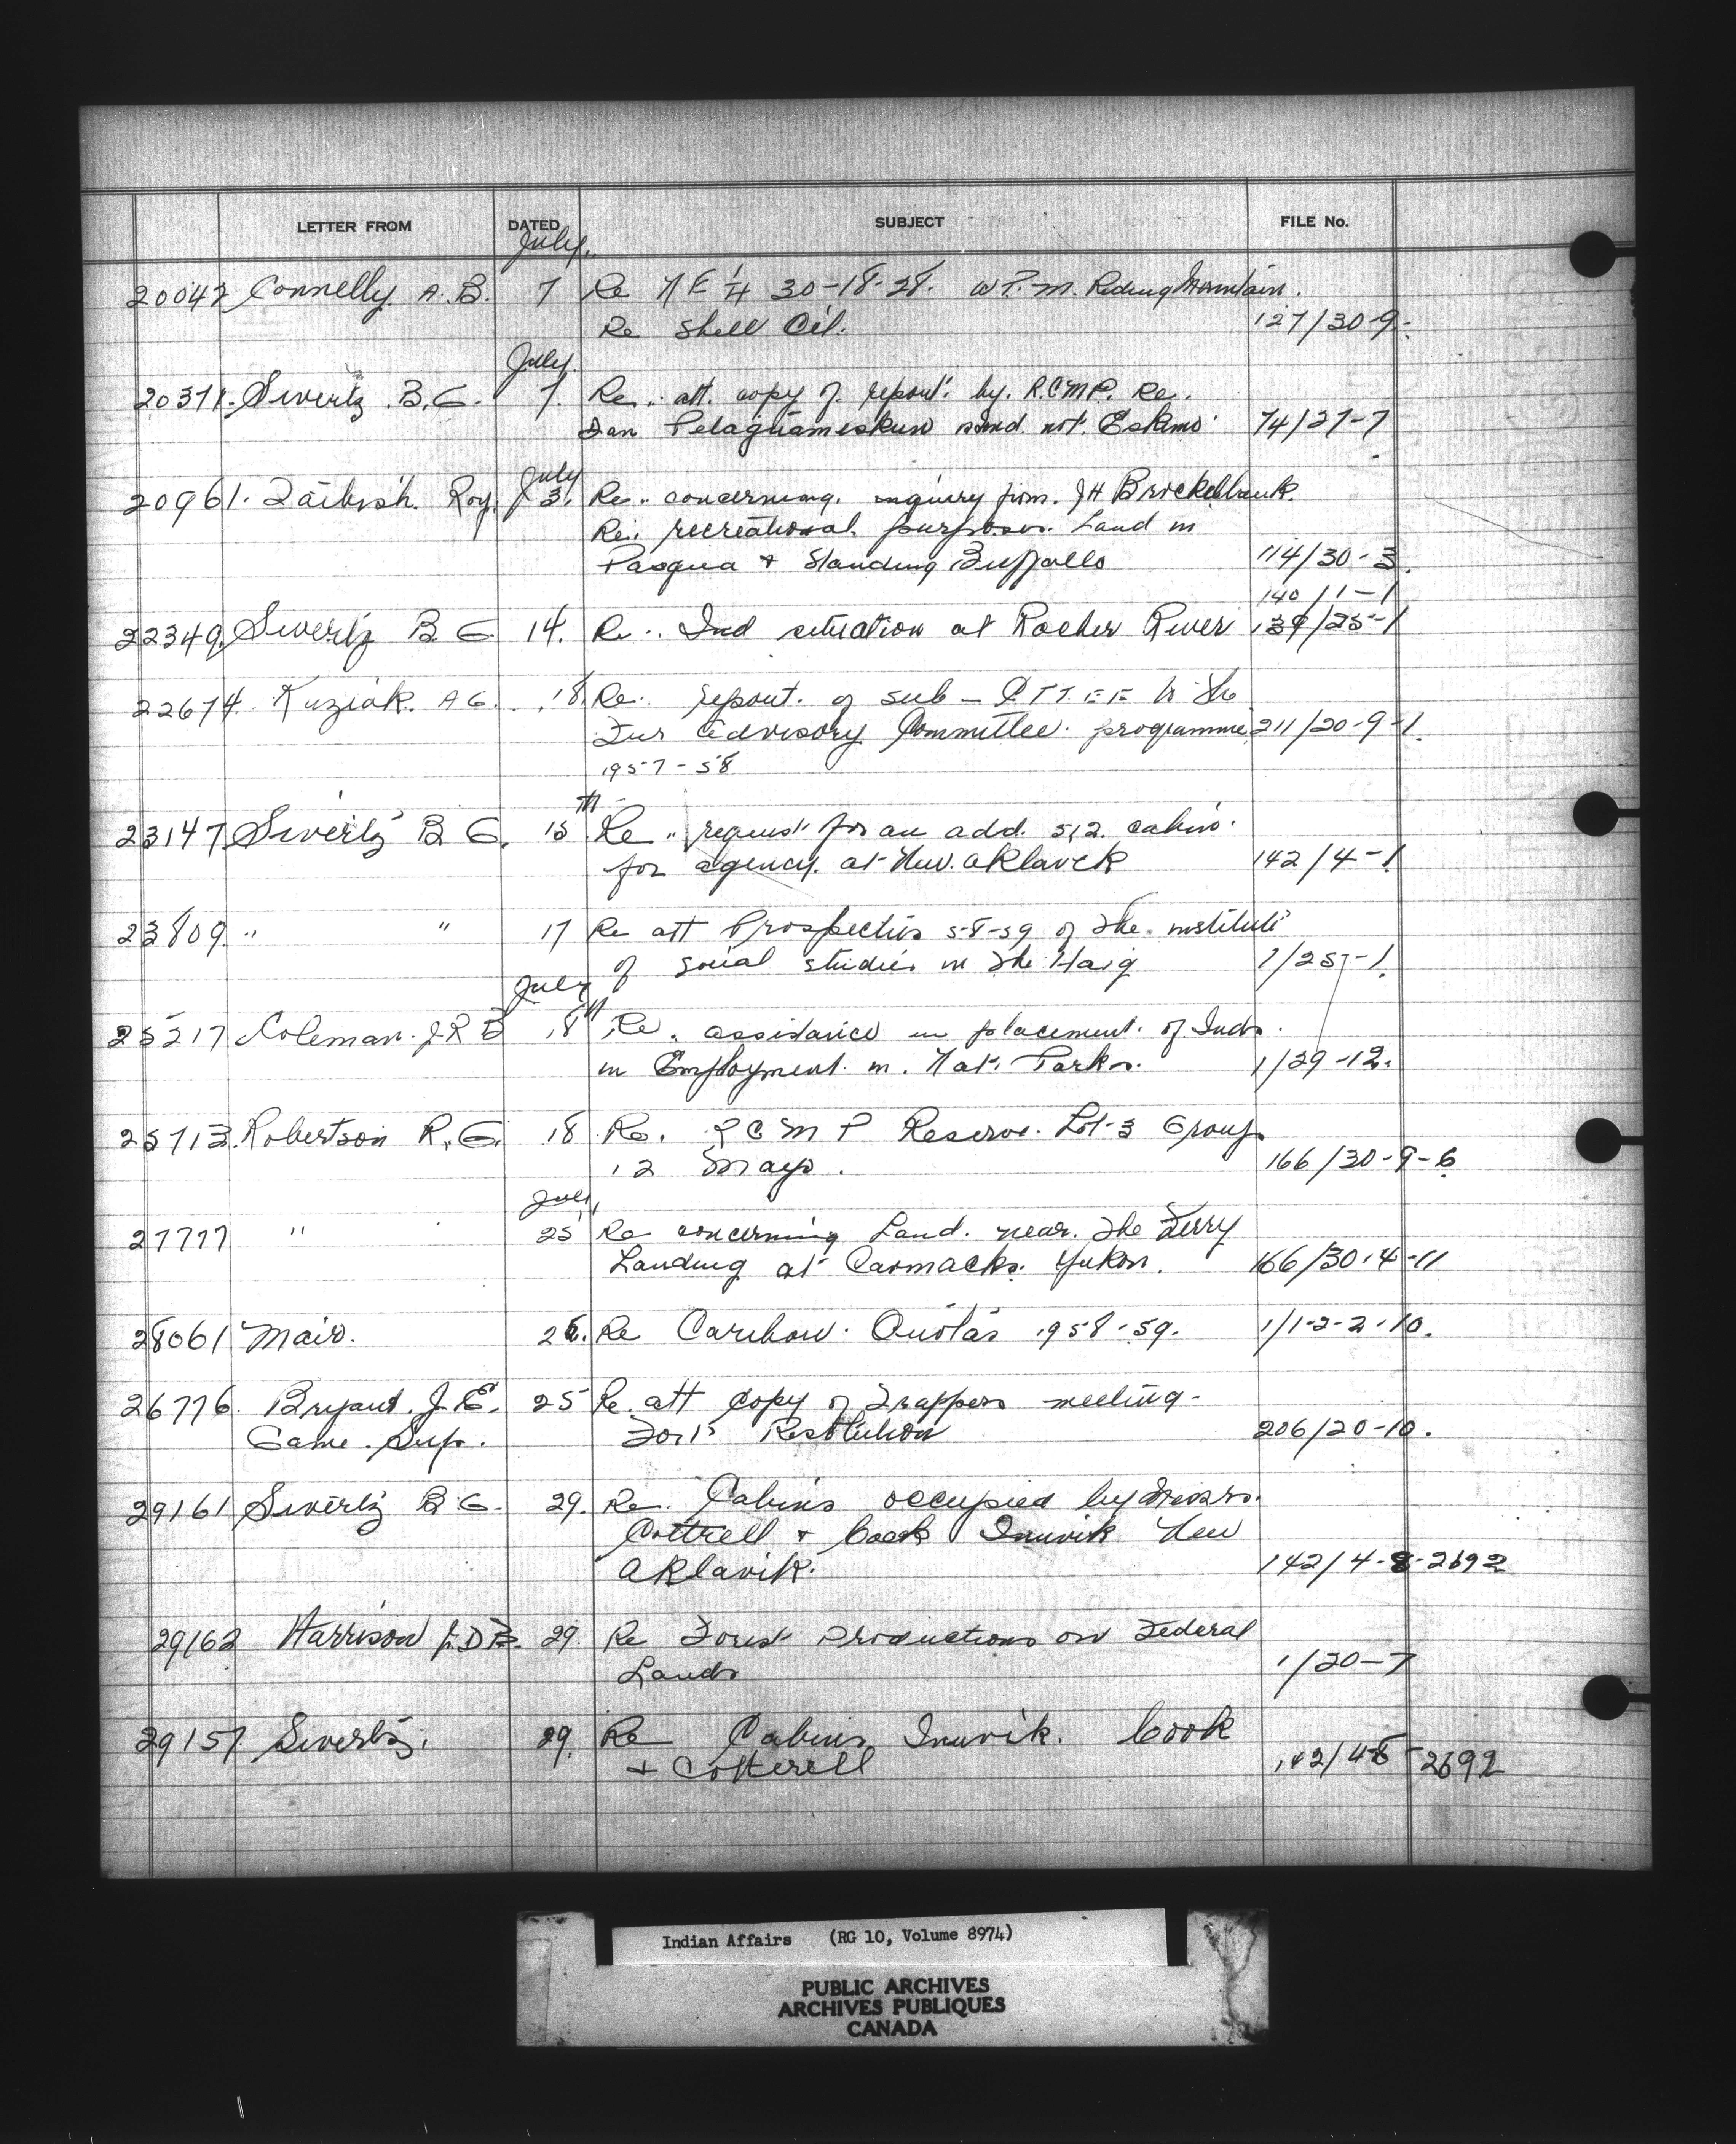 LETTER FROM DATED SUBJECT FILE No.
July
20042 Connelly A. B. 7 Re N E ¼ 30-18-28. W P. M. Riding Mountain.
Re Shell Oil. 127/30-9.
July
20371. Sivertz B. G. 7. Re att. copy of report by R.C.M.P. Re.
Dan Pelaquameskum and not Eskimo 74/27-7
July
20961. Roy. 3. Re concerning inquiry from J H Brockelbank.
Re recreational purposes. Land in
Pasqua + Standing Buffallo 114/30-3.
140/1-1
22349. Sivertz B G 14. Re Ind situation at Rocher River 139/25-1
22674 Kuziak. A G. 18. Re report of sub - CTTEE to the
Fur Advisory Committee programme 211/20-9-1.
1957-58
23147 Sivertz B G. 15th Re request for an add. 512 cabin
for agency at New Aklavik 142/4-1
23809. " " 17 Re att Prospectus 58-59 of the institute
of social studies in the Haig 1/25-1
July
25217 Coleman. J R B 18th Re. assistance in placement of Inds.
in Employment in Nat. Parks. 1/29-12.
25713. Robertson R. G. 18 Re. R C M P Reserve. Lot-3 Group
12 Mayo. 166/30-9-6
July
27777 " 25 Re concerning Land near the Ferry
Landing at Carmacks Yukon. 166/30-4-11
28061 Mair. 26. Re Caribou Quotas 1958-59. 1/1-2-2-10.
26776. Bryant J. E. 25 Re. att copy of Trappers meeting -
Game Sup. Fort Resolution 206/20-10.
29161 Sivertz B G. 29. Re. Cabins occupied by Messrs.
Cottrell + Cook Inuvik New
Aklavik. 142/4-8-2692
29162 Harrison J. D B. 29. Re Forest Productions on Federal
Lands 1/20-7
29157 Sivertz. 29. Re Cabins Inuvik. Cook
+ Cotterell 142/4-8-2692
Indian Affairs (RG 10, Volume 8974)
PUBLIC ARCHIVES
ARCHIVES PUBLIQUES
CANADA